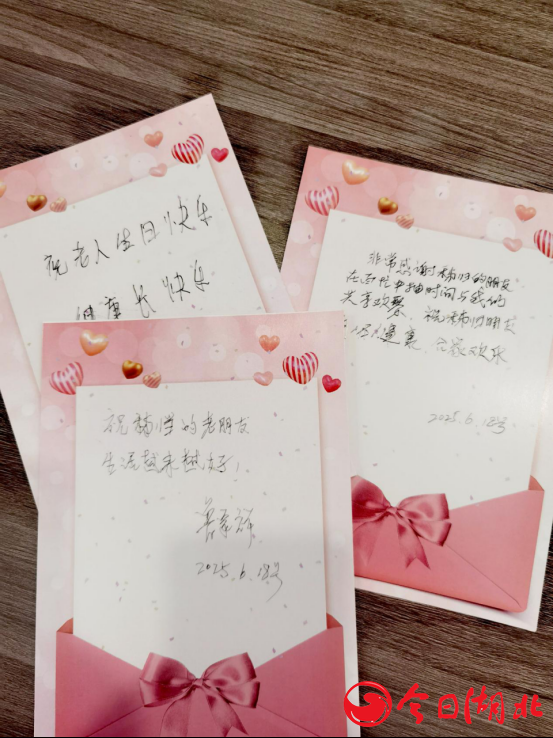 祝老人生日快乐
健康长快乐
非常感谢秭归的朋友
在百忙中抽时间与我们
共享欢聚、祝秭归朋友
合家欢乐
2025.6.18号
祝秭归的老朋友
生活越来越好,
2025.6.18号
今日湖北